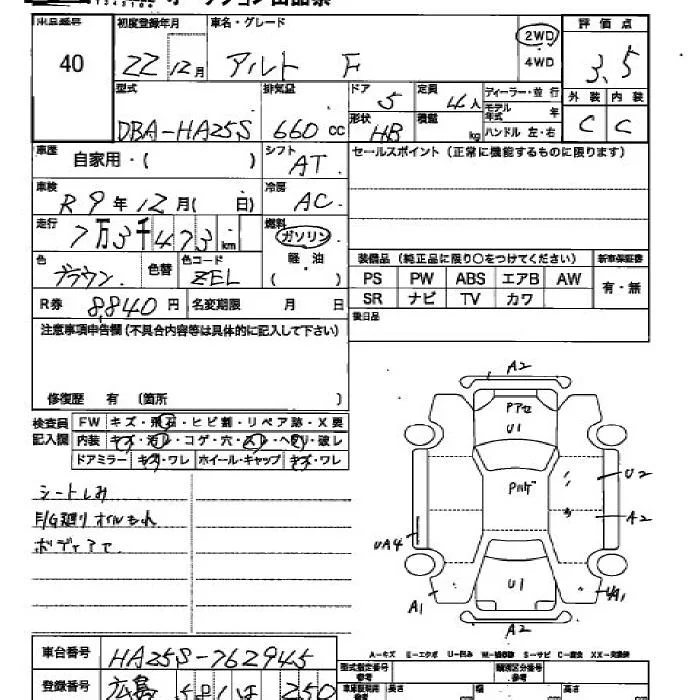 40
初度登録年月 車名・グレード
22 12月 アルト F
2WD
4WD
評価点
3.5
外装 内装
C C
型式 排気量 ドア 定員
DBA-HA25S 660 cc 5 4人
形状 積載
HB kg
ディーラー・並行
モデル年式 年
ハンドル 左・右
車歴 自家用・( )
シフト AT
セールスポイント (正常に機能するものに限ります)
車検 R9年12月( 日)
冷房 AC
走行 7万3千473km
燃料 ガソリン
軽油
( )
色 ブラウン 色替 色コード ZEL
装備品 (純正品に限り○をつけてください) 新車保証書
PS PW ABS エアB AW 有・無
SR ナビ TV カワ
R券 8,840円 名変期限 月 日
後日品
注意事項申告欄(不具合内容等は具体的に記入して下さい)
修復歴 有 (箇所 )
検査員記入欄
FW キズ・飛石・ヒビ割・リペア跡・X要
内装 キズ・汚レ・コゲ・穴・スレ・ヘタリ・破レ
ドアミラー キズ・ワレ ホイール・キャップ キズ・ワレ
シートしみ
E/G廻りオイルもれ
ボディアテ
A2
U1
U2
A2
UA4
U1
A1
A2
車台番号 HA25S-762945
A-キズ E-エクボ U-凹み S-サビ
登録番号 広島 581 は 250
型式指定番号 類別区分番号
長さ 幅 高さ